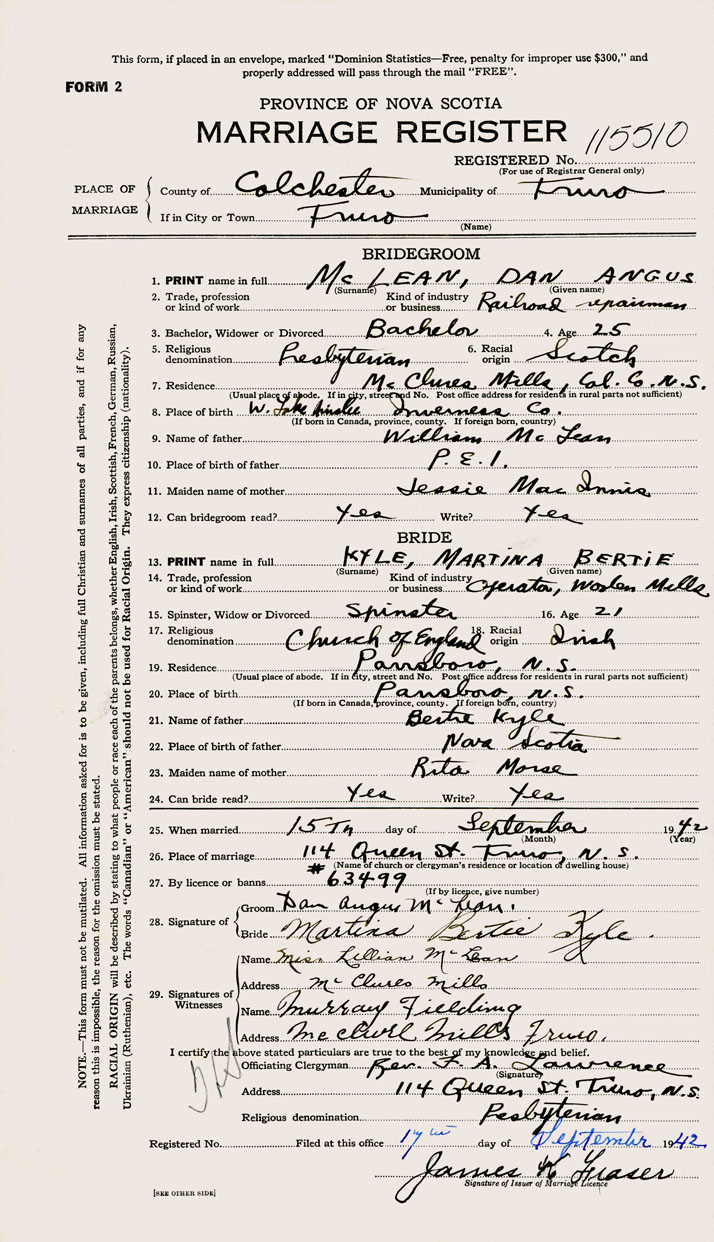 This form, if placed in an envelope, marked "Dominion Statistics—Free, penalty for improper use $300," and
properly addressed will pass through the mail "FREE".
FORM 2
PROVINCE OF NOVA SCOTIA
MARRIAGE REGISTER 115510
REGISTERED No.
(For use of Registrar General only)
PLACE OF MARRIAGE
County of Colchester Municipality of Truro
If in City or Town Truro
(Name)
BRIDEGROOM
1. PRINT name in full McLEAN, DAN ANGUS
(Surname) (Given name)
2. Trade, profession or kind of work Kind of industry or business Railroad repairman
3. Bachelor, Widower or Divorced Bachelor 4. Age 25
5. Religious denomination Presbyterian 6. Racial origin Scotch
7. Residence McClures Mills, Col. Co. N.S.
(Usual place of abode. If in city, street and No. Post office address for residents in rural parts not sufficient)
8. Place of birth W. Lake Ainslie Inverness Co.
(If born in Canada, province, county. If foreign born, country)
9. Name of father William McLean
10. Place of birth of father P.E.I.
11. Maiden name of mother Jessie MacInnis
12. Can bridegroom read? Yes Write? Yes
BRIDE
13. PRINT name in full KYLE, MARTINA BERTIE
(Surname) (Given name)
14. Trade, profession or kind of work Kind of industry or business Operator, Woolen Mills
15. Spinster, Widow or Divorced Spinster 16. Age 21
17. Religious denomination Church of England 18. Racial origin Irish
19. Residence Parrsboro, N.S.
(Usual place of abode. If in city, street and No. Post office address for residents in rural parts not sufficient)
20. Place of birth Parrsboro, N.S.
(If born in Canada, province, county. If foreign born, country)
21. Name of father Bertie Kyle
22. Place of birth of father Nova Scotia
23. Maiden name of mother Rita Morse
24. Can bride read? Yes Write? Yes
25. When married 15Th day of September 1942
(Month) (Year)
26. Place of marriage 114 Queen St. Truro, N.S.
(Name of church or clergyman's residence or location of dwelling house)
27. By licence or banns #63499
(If by licence, give number)
28. Signature of
Groom Dan Angus McLean.
Bride Martina Bertie Kyle.
29. Signatures of Witnesses
Name Miss Lillian McLean
Address McClures Mills
Name Murray Fielding
Address McClure Mills Truro.
I certify the above stated particulars are true to the best of my knowledge and belief.
Officiating Clergyman Rev. F. A. Lawrence
(Signature)
Address 114 Queen St. Truro, N.S.
Religious denomination Presbyterian
Registered No. Filed at this office 17th day of September 1942
James Fraser
Signature of Issuer of Marriage Licence
[SEE OTHER SIDE]
NOTE.—This form must not be mutilated. All information asked for is to be given, including full Christian and surnames of all parties, and if for any
reason this is impossible, the reason for the omission must be stated.
RACIAL ORIGIN will be described by stating to what people or race each of the parents belongs, whether English, Irish, Scottish, French, German, Russian,
Ukrainian (Ruthenian), etc. The words "Canadian" or "American" should not be used for Racial Origin. They express citizenship (nationality).